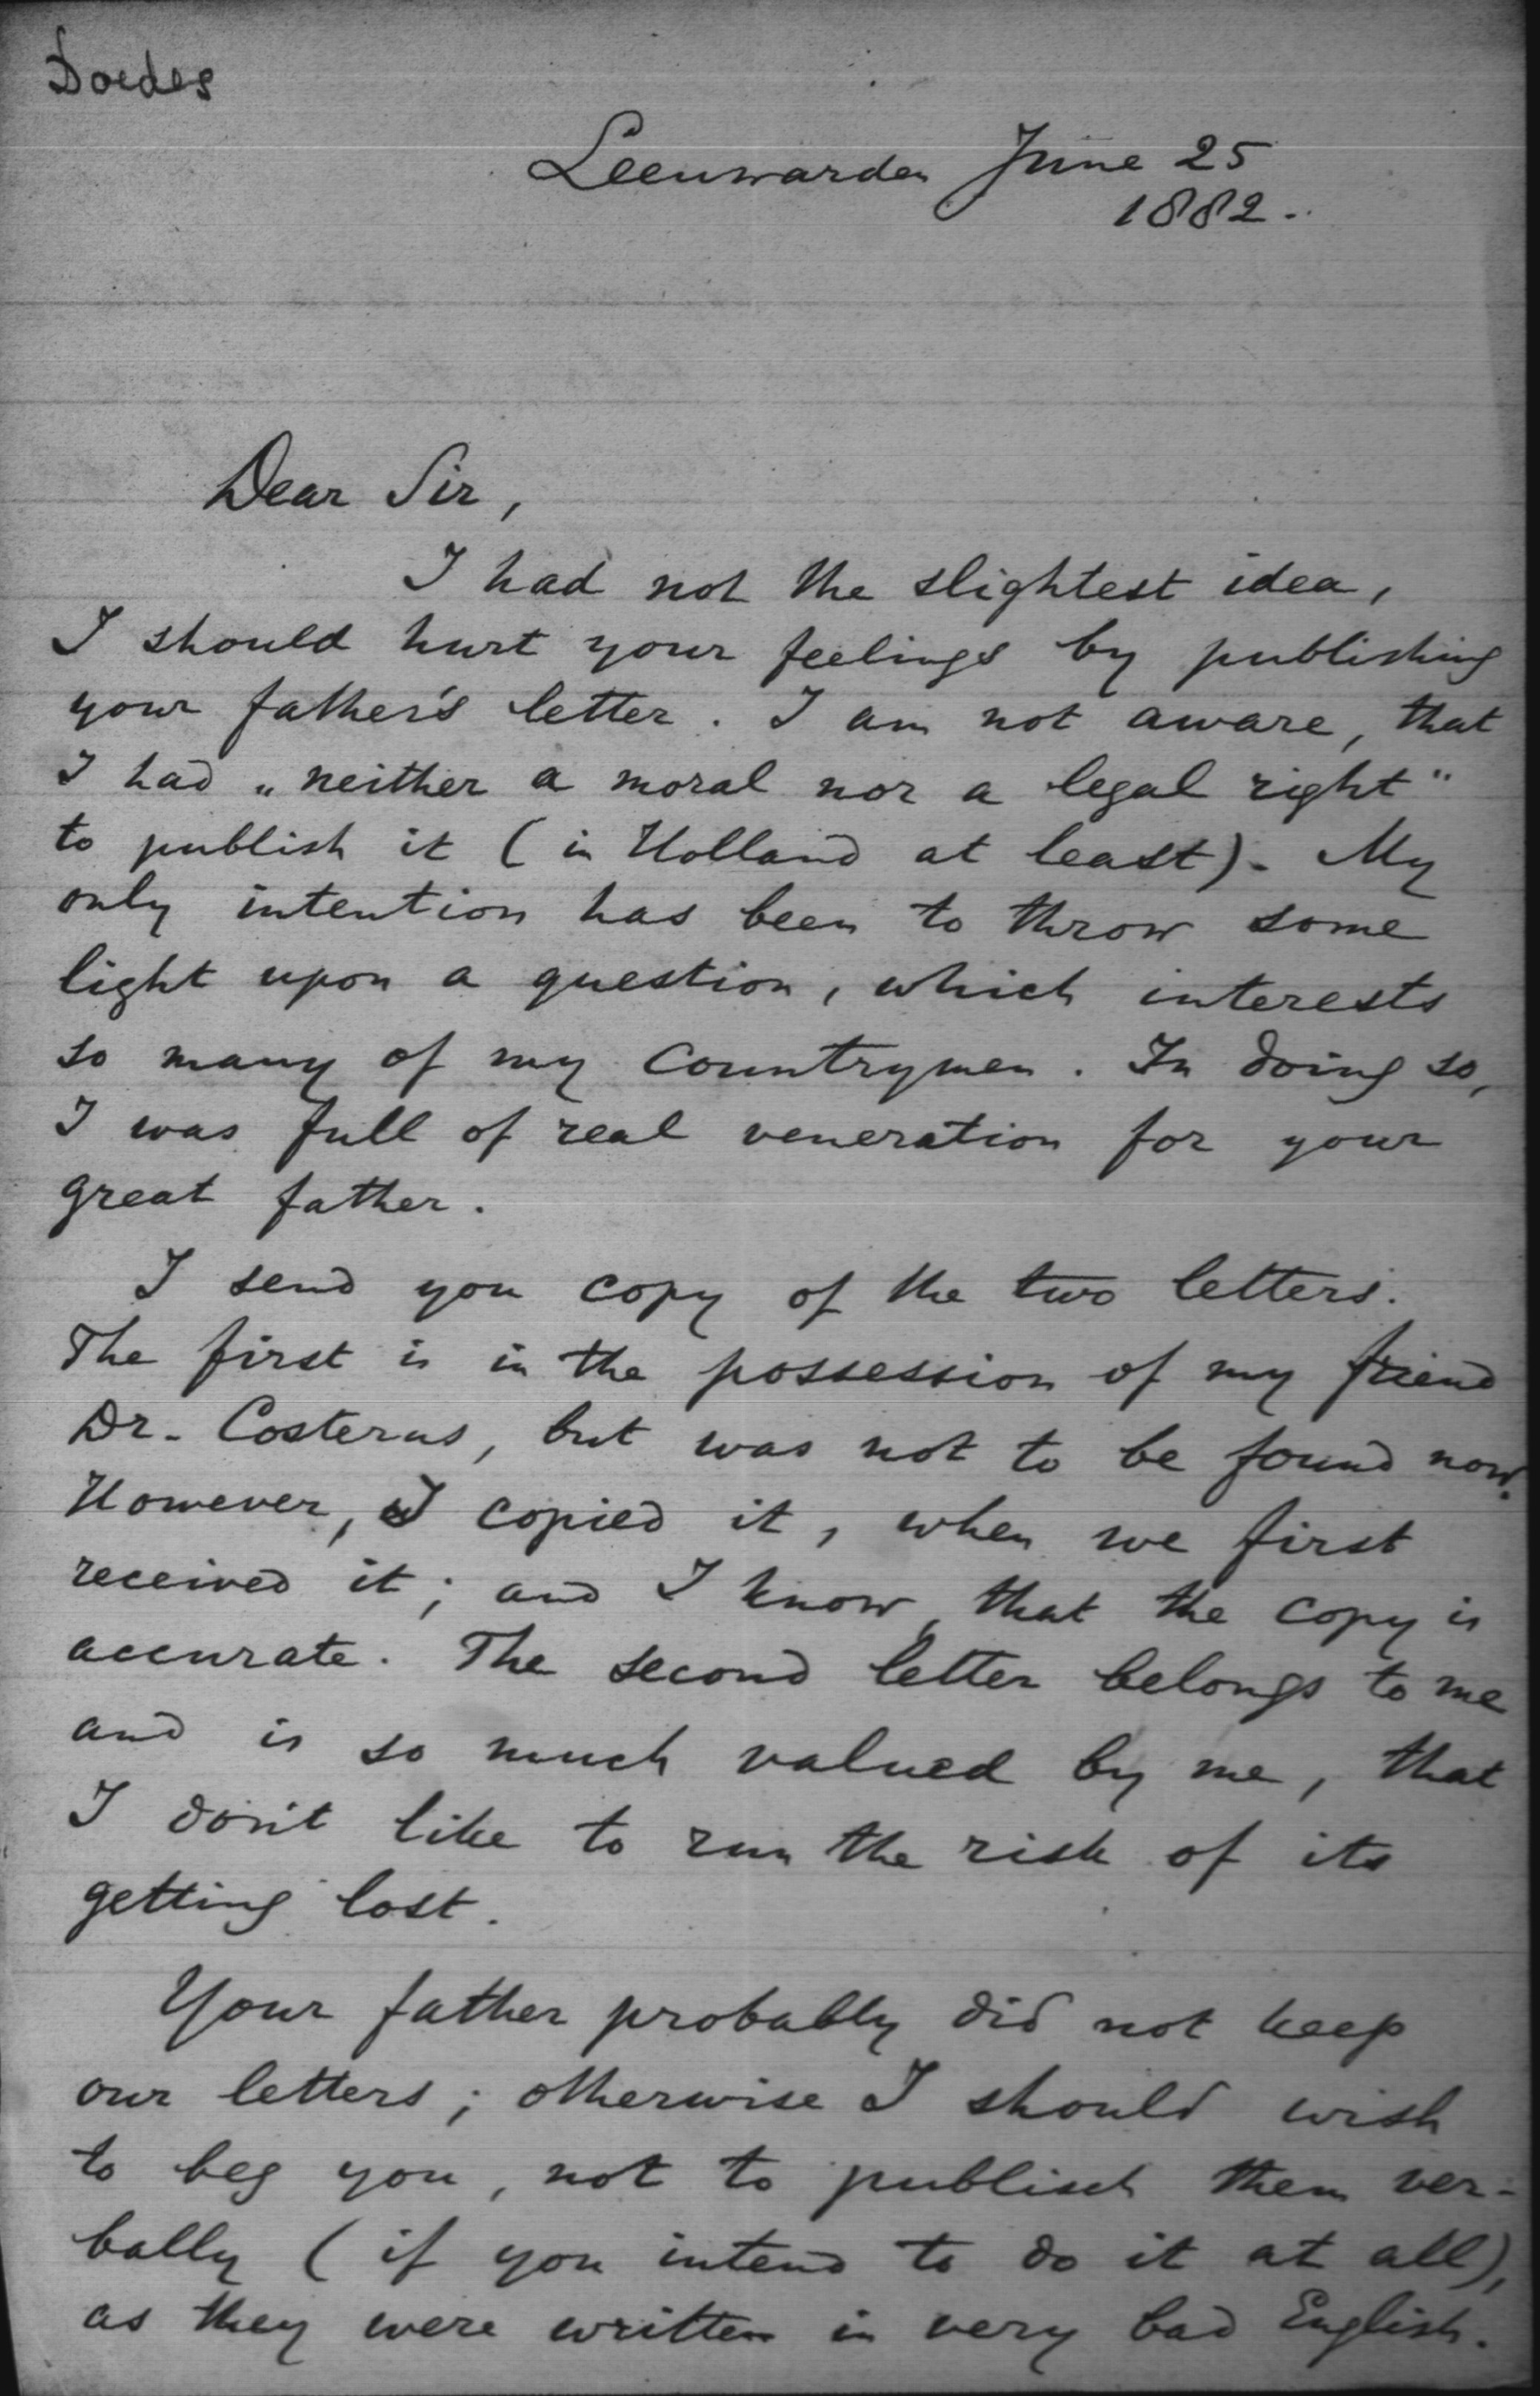 Doedes
Leeuwarden June 25
1882.
Dear Sir,
I had not the slightest idea,
I should hurt your feelings by publishing
your father's letter. I am not aware, that
I had „neither a moral nor a legal right"
to publish it (in Holland at least). My
only intention has been to throw some
light upon a question, which interests
so many of my countrymen. In doing so,
I was full of real veneration for your
great father.
I send you copy of the two letters.
The first is in the possession of my friend
Dr. Costerus, but was not to be found now.
However, I copied it, when we first
received it; and I know, that the copy is
accurate. The second letter belongs to me
and is so much valued by me, that
I don't like to run the risk of its
getting lost.
Your father probably did not keep
our letters; otherwise I should wish
to beg you, not to publish them ver-
bally (if you intend to do it at all),
as they were written in very bad English.